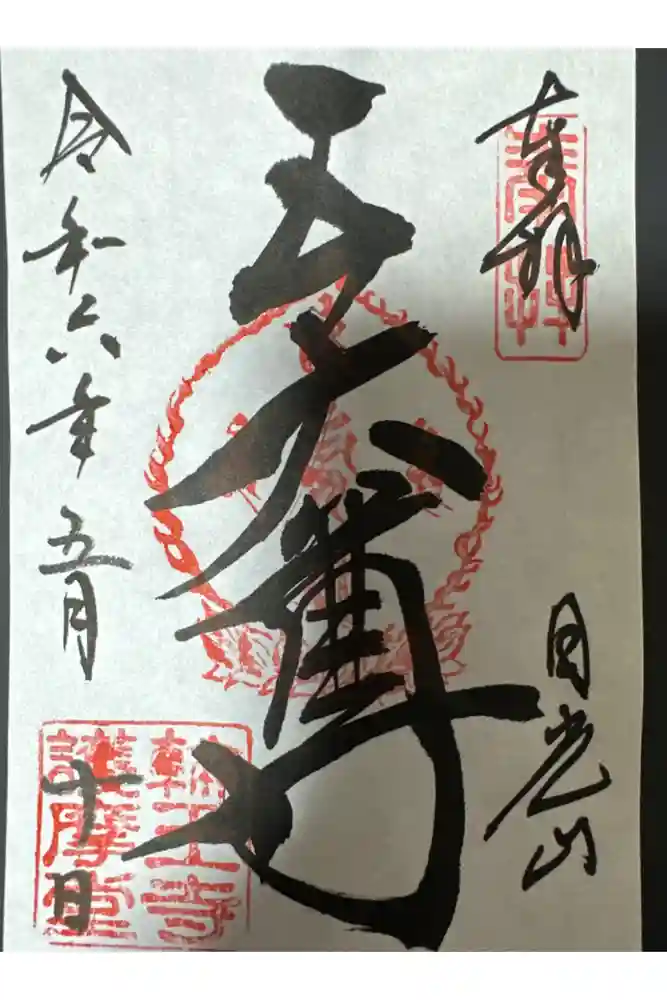 奉拝
日光山
五大尊
令和六年五月十日
奉拝
輪王寺
護摩堂